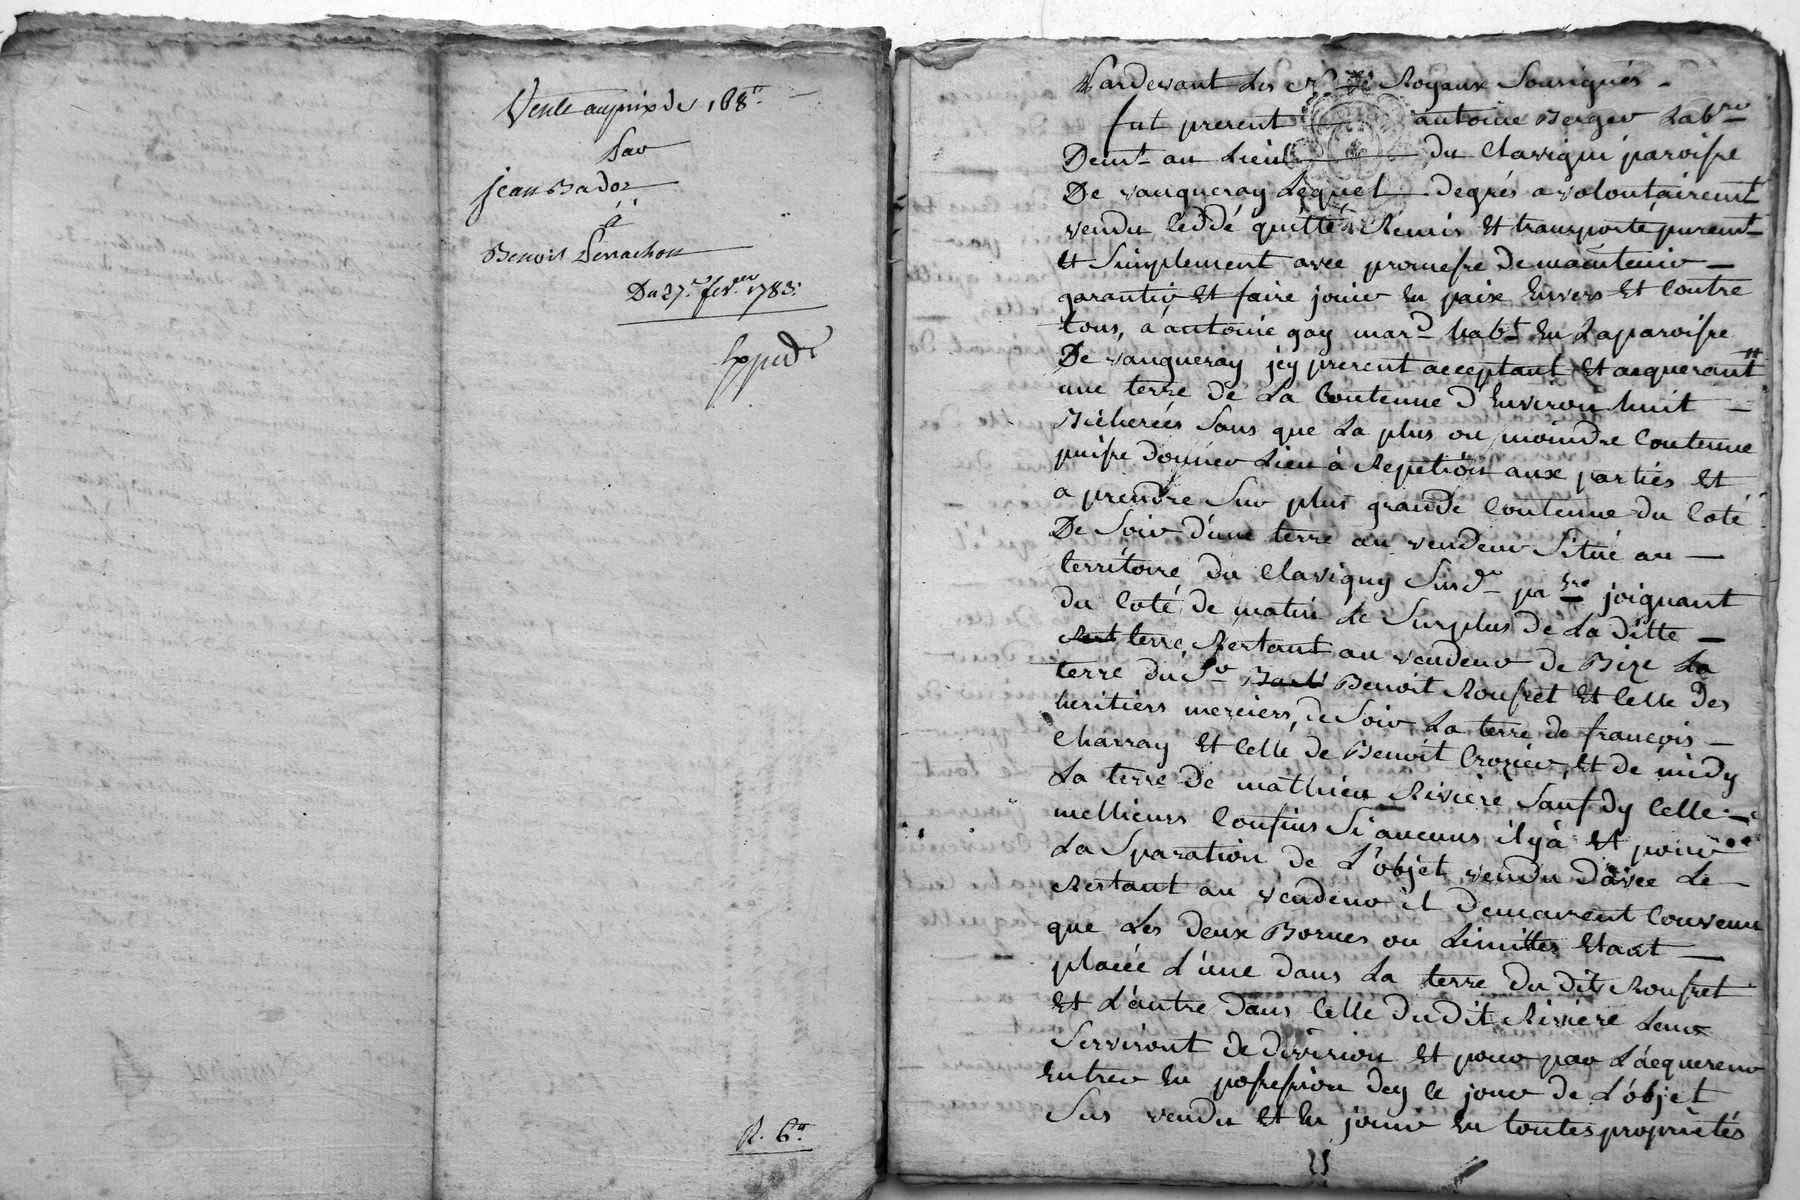 Vente au prix de 168ᵗᵗ
Par
jean Bador
à
Benoit Perrachon
Du 27ᵉ fevᵉʳ 1783
Exped
R. 6ᵗᵗ
Pardevant Les Nʳᵉˢ Royaux Sousignés
fut present antoine Berger Labʳ
Demᵗ au Lieu du Clavigni paroisse
De vaugneray Lequel degrés a volontairemᵗ
vendu ceddé quitté Remis Et transporté puremᵗ
Et Simplement avec promesse De maintenir
garantir Et faire jouir En paix Envers Et Contre
tous, à antoine gay marᵈ habᵗ En La paroisse
De vaugneray jcy present acceptant Et acquerant
une terre de La Contenue d'Environ huit
Bicherées Sans que La plus ou moindre Contenue
puisse donner Lieu à Repetition aux parties Et
a prendre Sur plus grande Contenue du Coté
De Soir d'une terre au vendeur Situé au
territoire du Clavigny Susdᵉ paᶦˢˢᵉ joignant
du Coté de matin Le Surplus de La ditte
terre Restant au vendeur de Bize La
terre du Sʳ Benoit Rousset Et Celle des
heritiers merciers, de Soir La terre de françois
Charray Et Celle de Benoit Crozier, Et de midy
La terre de mathieu Riviere Sauf dy Celle
mellieurs Confins Si aucuns il y à Et pour
La Sparation de L'objet vendu d'avec Le
Restant au vendeur il Demeurent Convenu
que Les deux Bornes ou Limittes Etant
placée L'une dans La terre du dit Rousset
Et L'autre dans Celle du dit Riviere Leur
Serviront de division Et pour par L'acquereur
Entrer En possession dey ce jour de L'objet
Sus vendu Et En jouir En toutes proprietés